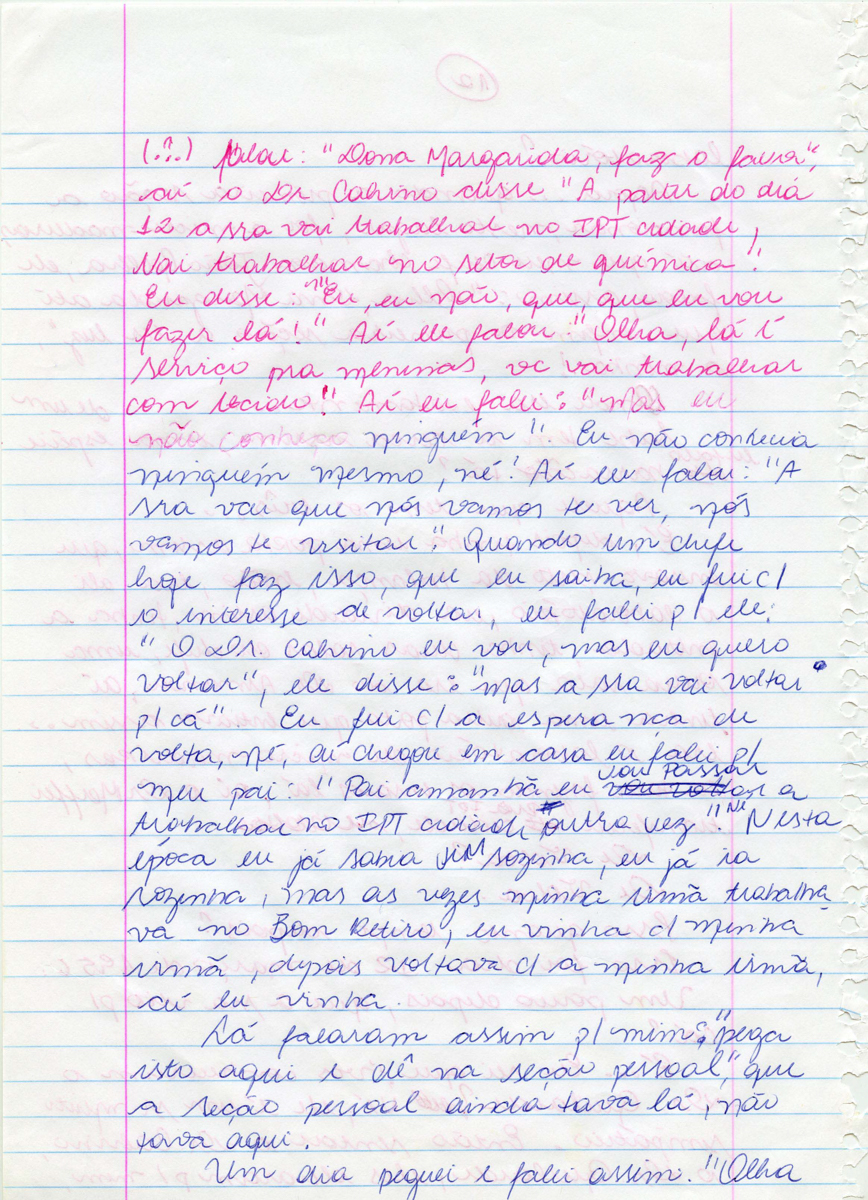 (...) falou: "Dona Margarida, faz o favor",
aí o Dr Calvino disse "A partir do dia
12 a sra vai trabalhar no IPT cidade,
Vai trabalhar no setor de química".
Eu disse: "Eu, eu não, que, que eu vou
fazer lá!" Aí ele falou: "Olha, lá é
serviço pra meninas, vc vai trabalhar
com tecido!" Aí eu falei: "Mas eu
não conheço ninguém". Eu não conhecia
ninguém mesmo, né! Aí ele falou: "A
sra vai que nós vamos te ver, nós
vamos te visitar". Quando um chefe
hoje faz isso, que eu saiba, eu fui c/
o interesse de voltar, eu falei p/ ele:
"O Dr. Calvino eu vou, mas eu quero
voltar", ele disse: "mas a sra vai voltar
p/ cá". Eu fui c/ a esperança de
volta, né, aí chegou em casa eu falei p/
meu pai: "Pai amanhã eu vou passar a
trabalhar no IPT cidade outra vez". Né Nesta
época eu já sabia vim sozinha, eu já ia
sozinha, mas as vezes minha irmã trabalha
va no Bom Retiro, eu vinha c/ minha
irmã, depois voltava c/ a minha irmã,
aí eu vinha.
Lá falaram assim p/ mim: "pega
isto aqui e dê na seção pessoal", que
a seção pessoal ainda tava lá, não
tava aqui.
Um dia peguei e falei assim: "Olha